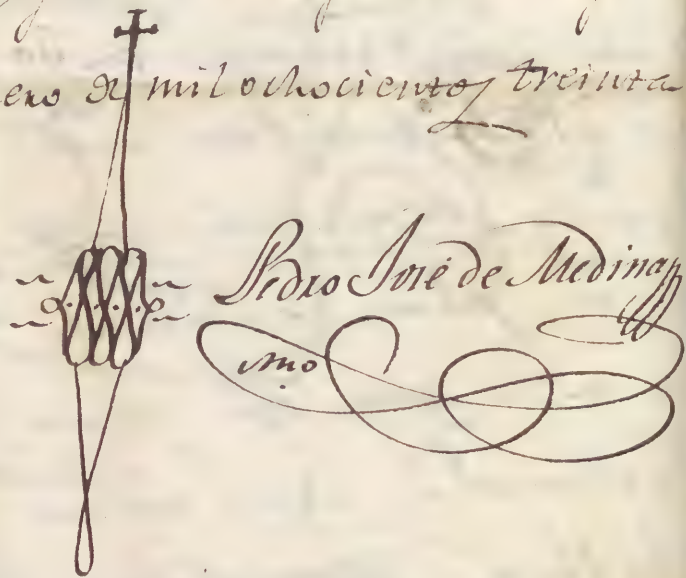 ero de mil ochocientos treinta
Pedro José de Medina